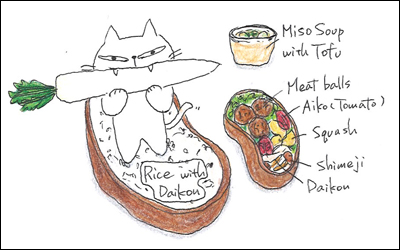 Miso Soup
with Tofu
Meat balls
Aiko(Tomato)
Squash
Shimeji
Daikon
Rice with
Daikon